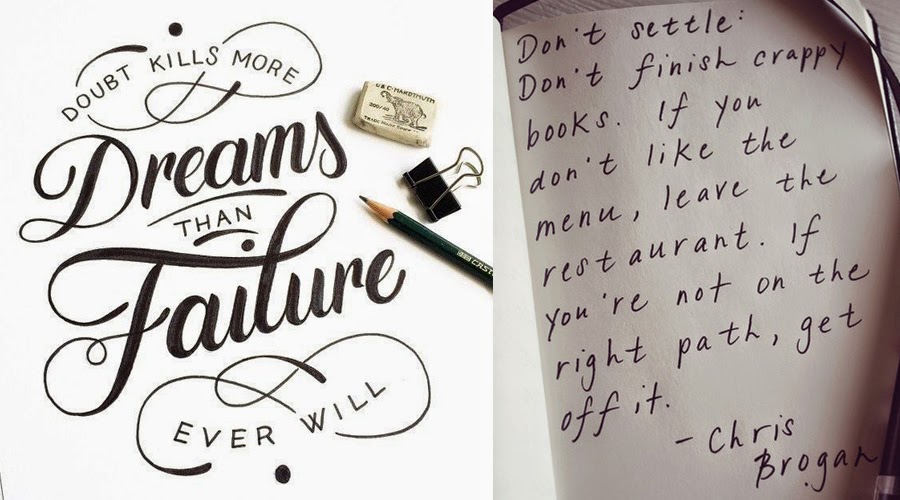 DOUBT KILLS MORE
Dreams
THAN
Failure
EVER WILL
Don't settle:
Don't finish crappy
books. If you
don't like the
menu, leave the
restaurant. If
you're not on the
right path, get
off it.
- Chris
Brogan